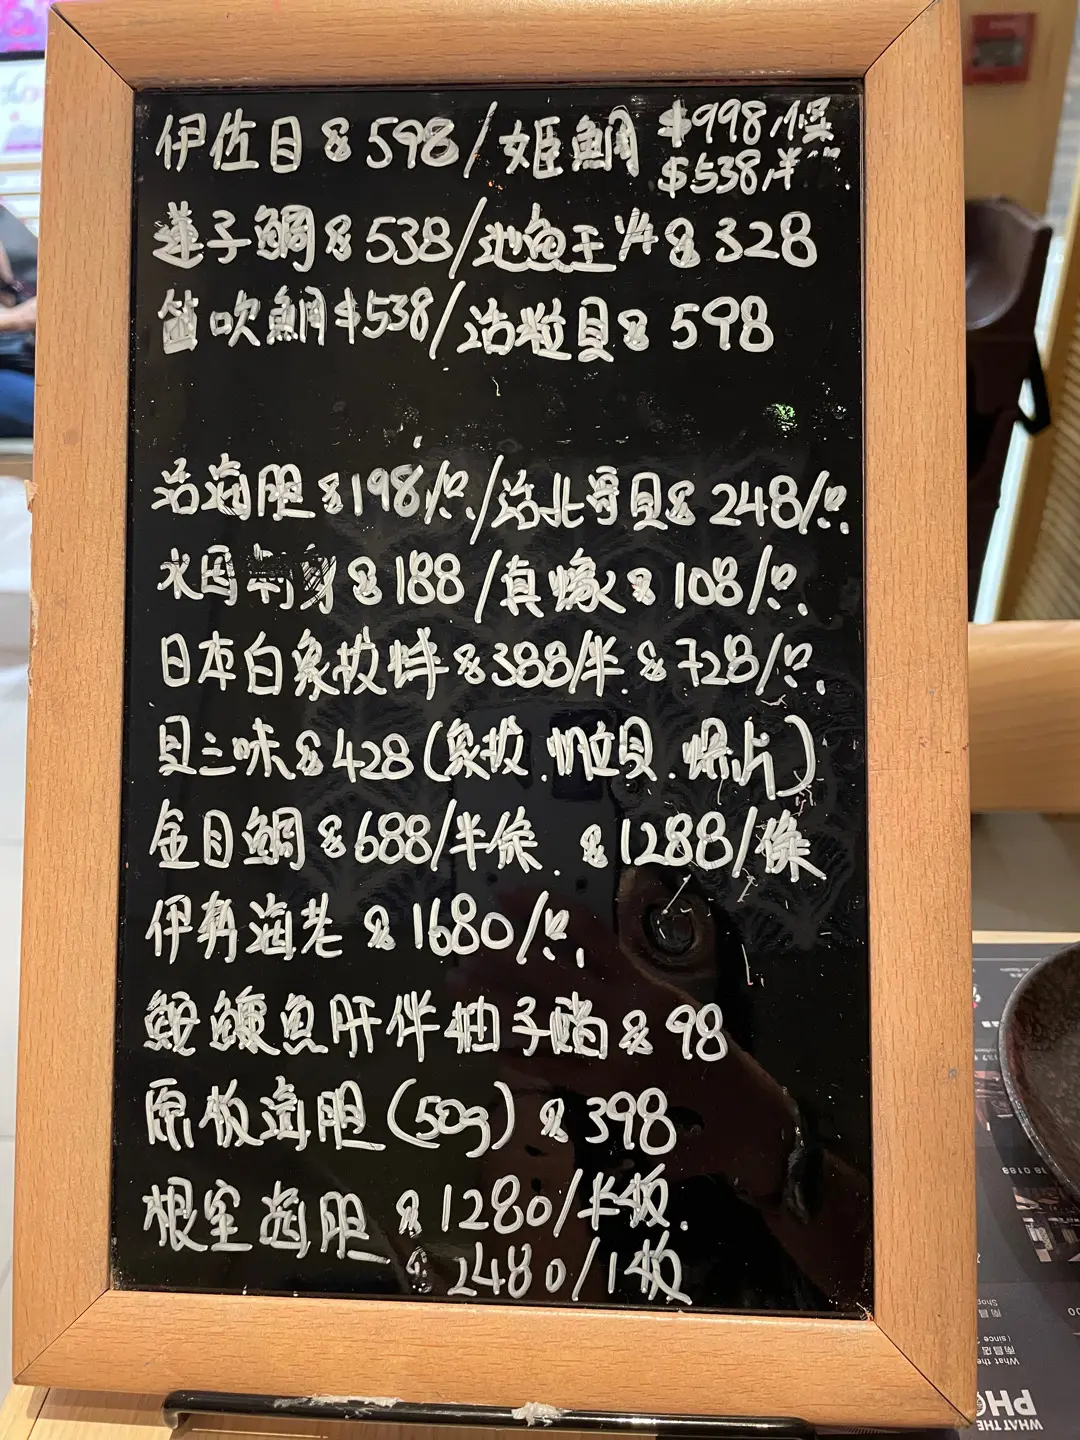 伊佐目 $598/姬鯛 $998/條
$538/半條
蓮子鯛 $538/池魚王 1/4 $328
笛吹鯛 $538/活粒貝 $598
活海胆 $198/只./活北寄貝 $248/只.
水囯 刺身 $188/真蠔 $108/只.
日本白象拔蚌 $388/半. $728/只.
貝三味 $428(象拔.帆立貝.螺片)
金目鯛 $688/半條. $1288/條
伊勢海老 $1680/只.
鮟鱇魚肝伴柚子醋 $98
原板海胆(50g) $398
根室海胆 $1280/半板.
$2480/1板
WHAT THE
PHO
What the
(since
南昌店
Shop